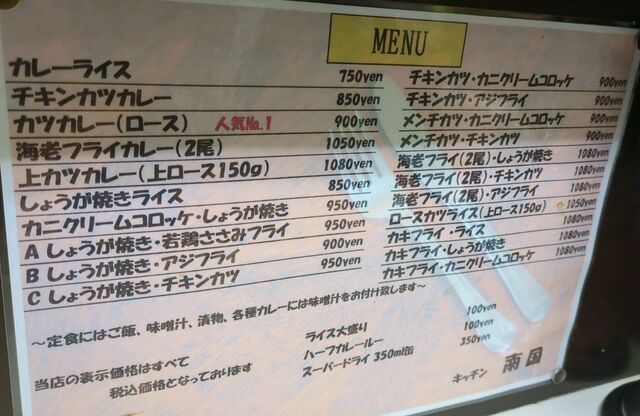 MENU
カレーライス 750yen
チキンカツカレー 850yen
カツカレー(ロース) 人気No.1 900yen
海老フライカレー(2尾) 1050yen
上カツカレー(上ロース150g) 1080yen
しょうが焼きライス 850yen
カニクリームコロッケ・しょうが焼き 950yen
A しょうが焼き・若鶏ささみフライ 950yen
B しょうが焼き・アジフライ 900yen
C しょうが焼き・チキンカツ 950yen
チキンカツ・カニクリームコロッケ 900yen
チキンカツ・アジフライ 900yen
メンチカツ・カニクリームコロッケ 900yen
メンチカツ・チキンカツ 900yen
海老フライ(2尾)・しょうが焼き 1080yen
海老フライ(2尾)・チキンカツ 1080yen
海老フライ(2尾)・アジフライ 1080yen
ロースカツライス(上ロース150g) 1050yen
カキフライ・ライス 1080yen
カキフライ・しょうが焼き 1080yen
カキフライ・カニクリームコロッケ 1080yen
～定食にはご飯、味噌汁、漬物、各種カレーには味噌汁をお付け致します～
ライス大盛り 100yen
ハーフカレールー 100yen
スーパードライ 350ml缶 350yen
当店の表示価格はすべて
税込価格となっております
キッチン 南国